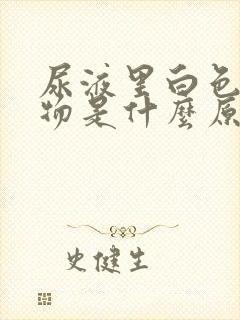 尿液里白色
物是什麼原
史健生